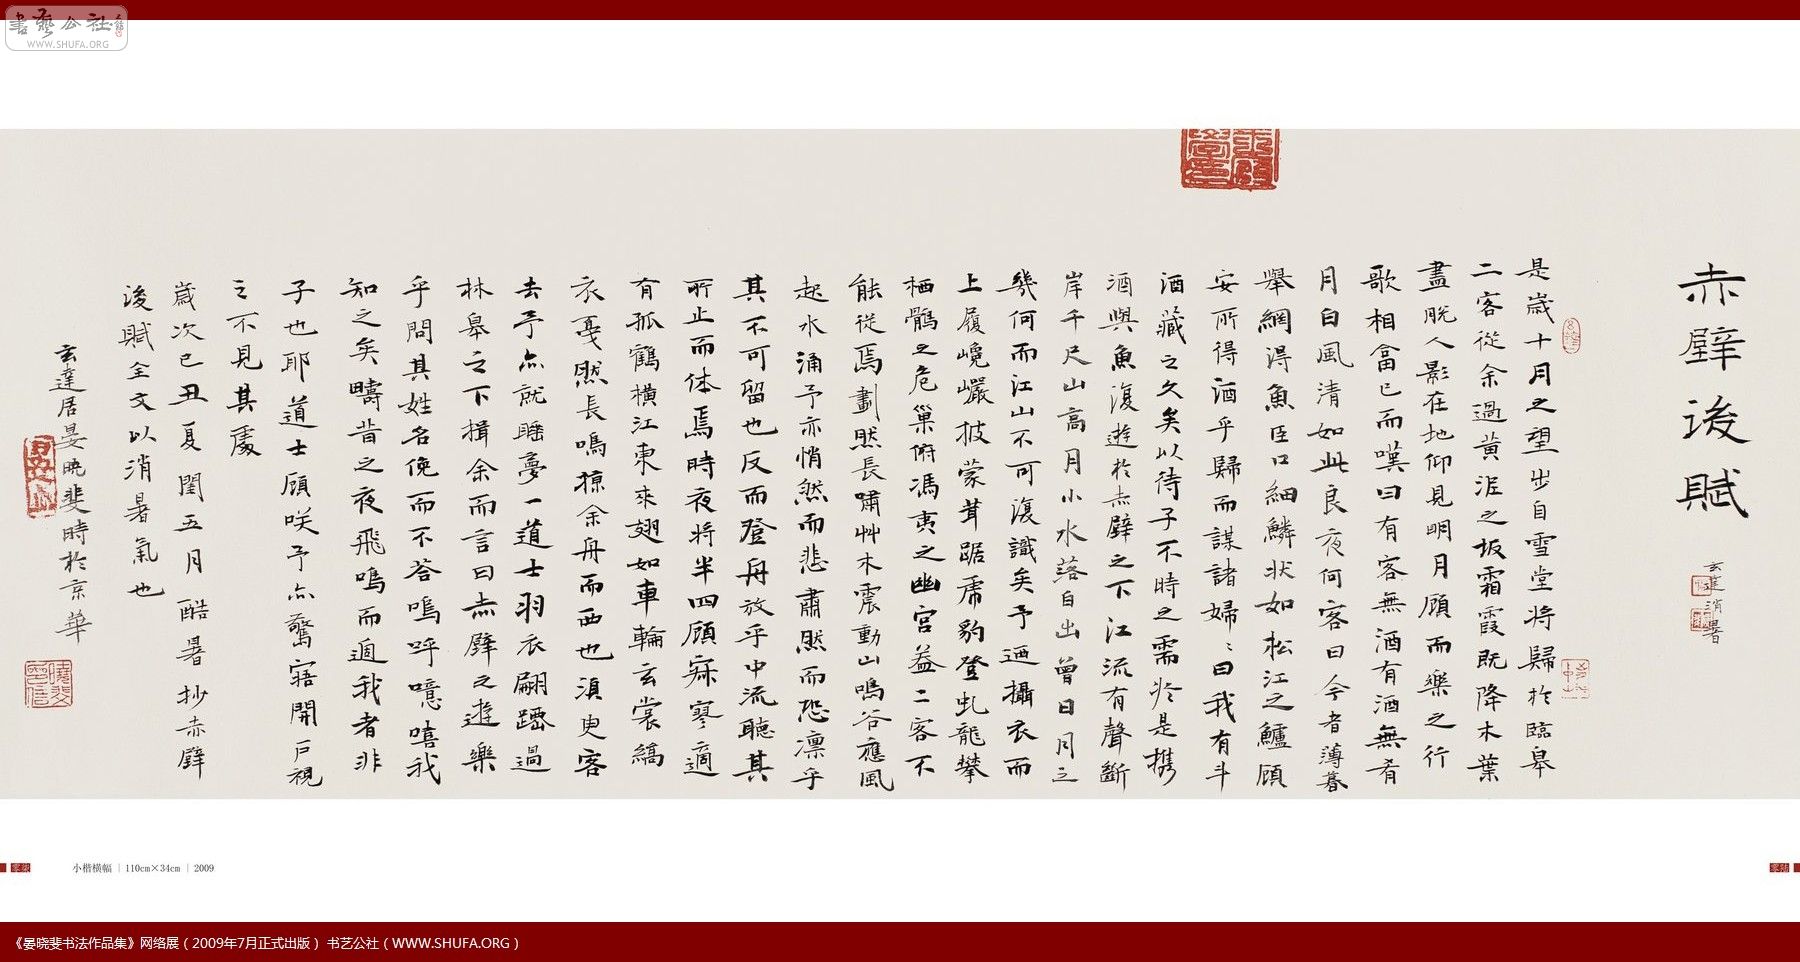 書藝公社
WWW.SHUFA.ORG
赤壁後賦
玄達消暑
是歲十月之望步自雪堂將歸於臨皋
二客從余過黃泥之坂霜露既降木葉
盡脫人影在地仰見明月顧而樂之行
歌相畣已而嘆曰有客無酒有酒無肴
月白風清如此良夜何客曰今者薄暮
舉網得魚巨口細鱗狀如松江之鱸顧
安所得酒乎歸而謀諸婦〻曰我有斗
酒藏之久矣以待子不時之需於是携
酒與魚復遊於赤壁之下江流有聲斷
岸千尺山高月小水落自出曾日月之
幾何而江山不可復識矣予迺攝衣而
上履巉巖披蒙茸踞虎豹登虬龍攀
栖鶻之危巢俯馮夷之幽宮益二客不
能從焉劃然長嘯艸木震動山鳴谷應風
起水涌予亦悄然而悲肅然而恐凛乎
其不可留也反而登舟放乎中流聽其
所止而休焉時夜將半四顧寂寥適
有孤鶴橫江東來翅如車輪玄裳縞
衣戛然長鳴掠余舟而西也須臾客
去予亦就睡夢一道士羽衣翩躚過
林皋之下揖余而言曰赤壁之遊樂
乎問其姓名俛而不答嗚呼噫嘻我
知之矣疇昔之夜飛鳴而過我者非
子也耶道士顧咲予亦驚寤開戶視
之不見其處
歲次己丑夏閏五月酷暑抄赤壁
後賦全文以消暑氣也
玄達居晏曉斐時於京華
小楷横幅 | 110cm×34cm | 2009
《晏晓斐书法作品集》网络展（2009年7月正式出版） 书艺公社（WWW.SHUFA.ORG）